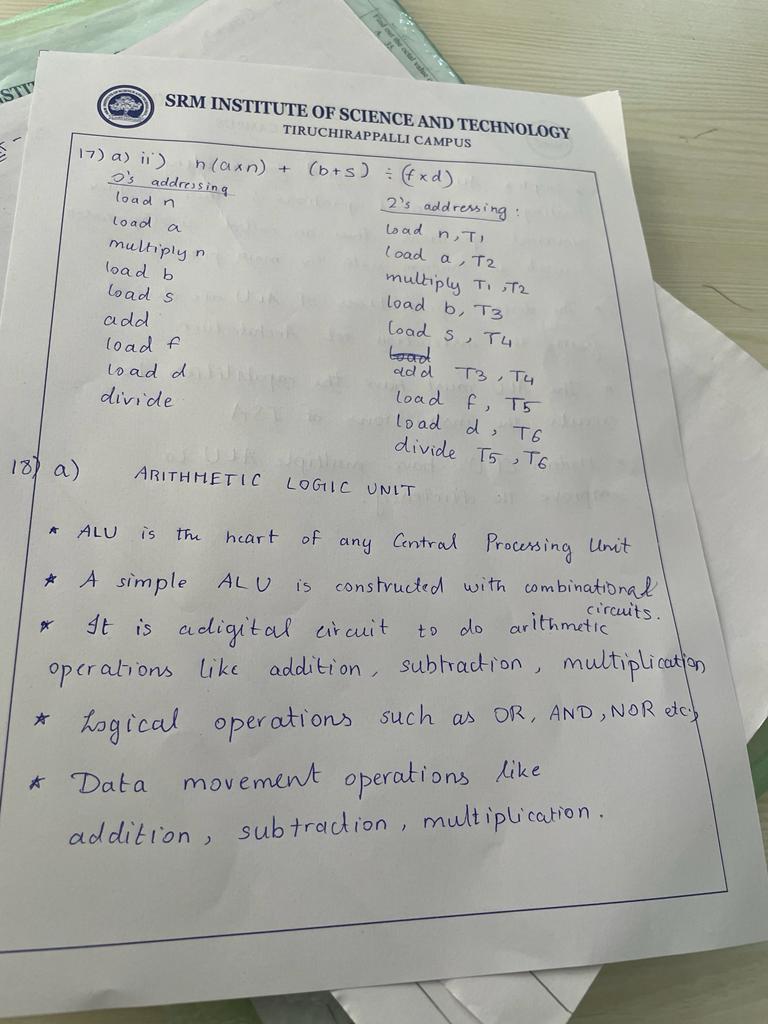 SRM INSTITUTE OF SCIENCE AND TECHNOLOGY
TIRUCHIRAPPALLI CAMPUS
17) a) ii) n(a×n) + (b+s) ÷ (f×d)
0's addressing
load n
load a
multiply n
load b
load s
add
load f
load d
divide
2's addressing :
load n, T1
load a, T2
multiply T1, T2
load b, T3
load s, T4
load
add T3, T4
load f, T5
load d, T6
divide T5, T6
18) a) ARITHMETIC LOGIC UNIT
* ALU is the heart of any Central Processing Unit
* A simple ALU is constructed with combinational
circuits.
* It is adigital circuit to do arithmetic
operations like addition, subtraction, multiplication
* Logical operations such as OR, AND, NOR etc;
* Data movement operations like
addition, subtraction, multiplication.